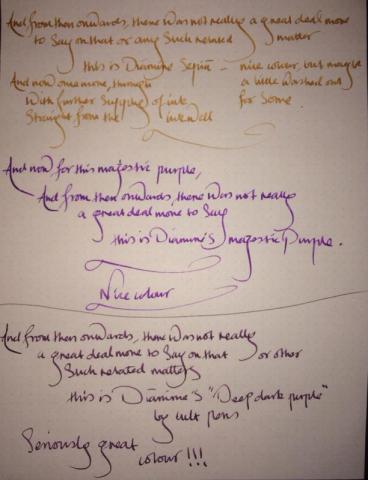 And from then onwards, there was not really a great deal more
to say on that or any such related matter
this is Diamine Sepia - nice colour, but maybe
a little washed out
for some.
And now once more, through
with further supplies of ink
straight from the inkwell
And now for this majestic purple,
And from then onwards, there was not really
a great deal more to say
this is Diamine's majestic Purple.
Nice colour
And from then onwards, there was not really
a great deal more to say on that or other
such related matters
this is Diamine's "Deep dark purple"
by cult pens
Seriously great
colour!!!